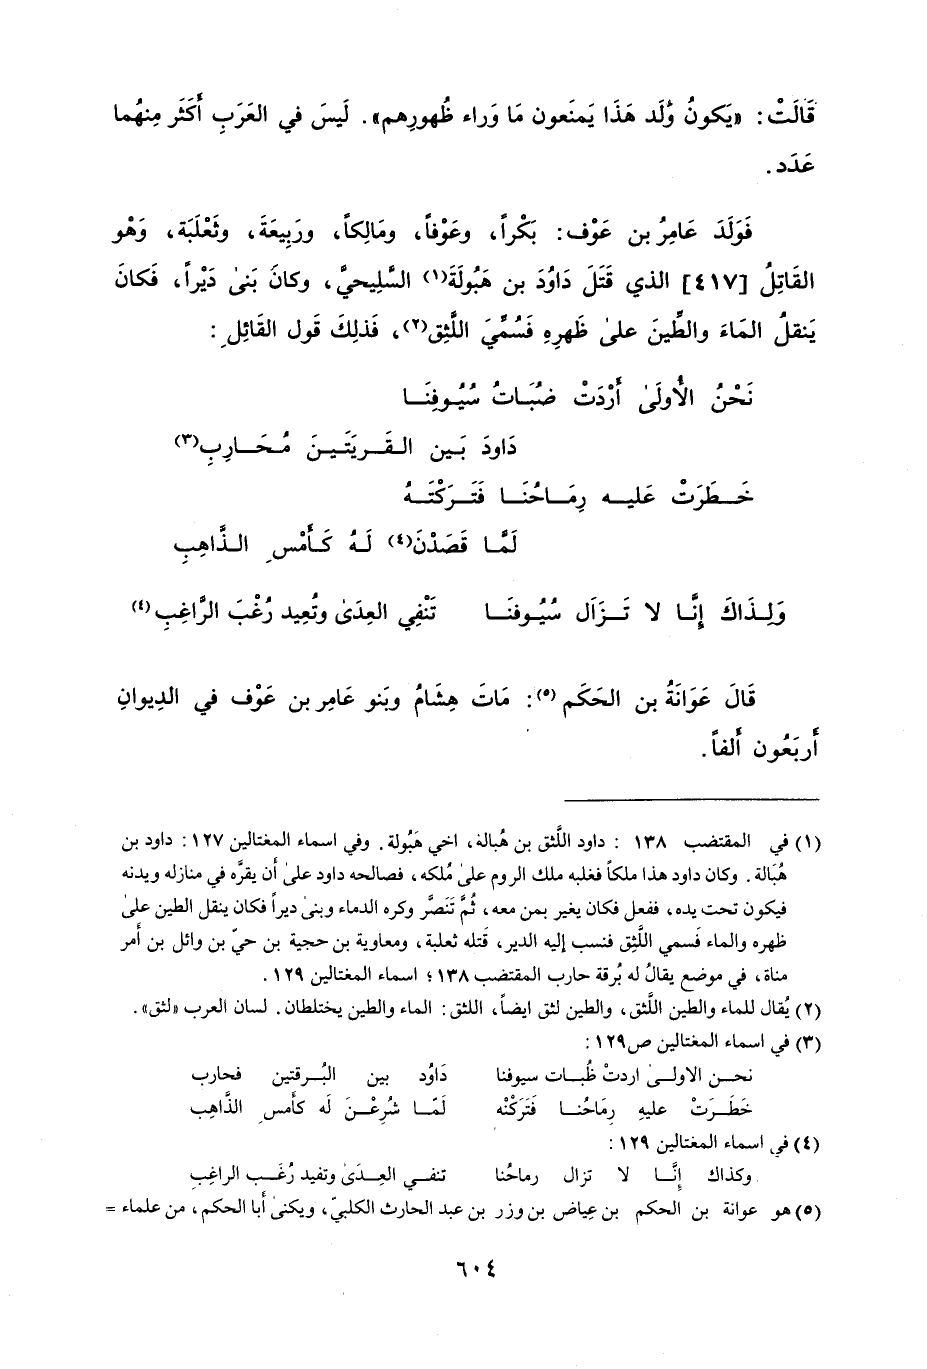 قَالَتْ: «يَكونُ وُلَد هَذَا يَمنَعون مَا وَراء ظُهورِهم». لَيسَ في العَرَبِ أَكثَر مِنهُما
عَدَد.
فَوَلَدَ عَامِرُ بن عَوْف: بَكْراً، وعَوْفاً، ومَالِكاً، ورَبِيعَةَ، وثَعْلَبَة، وَهْو
القَاتِلُ [٤١٧] الذي قَتَلَ دَاوُدَ بن هَبُولَةَ(١) السَّلِيحيَّ، وكانَ بَنىٰ دَيْراً، فَكانَ
يَنقلُ المَاءَ والطِّينَ علىٰ ظَهرِهِ فَسُمِّيَ اللَّثِق(٢)، فَذلِكَ قَول القَائِلِ:
نَحْنُ الأُولَىٰ أَرْدَتْ ضُبَـاتُ سُيُـوفِنَـا
دَاودَ بَـين القَـريَتَـينَ مُـحَـارِبِ(٣)
خَـطَرَتْ عَليـه رِمَـاحُنَـا فَتَـرَكْتَـهُ
لَمَّـا قَصَدْنَ(٤) لَـهُ كَـأَمْسِ الـذَّاهِبِ
وَلِـذَاكَ إِنَّـا لا تَـزَال سُيُـوفنَـا تَنْفِي العِدَىٰ وتُعِيد رُعْبَ الرَّاغِبِ(٤)
قَالَ عَوَانَةُ بن الحَكَم(٥): مَاتَ هِشَامُ وبَنو عَامِر بن عَوْف في الدِيوانِ
أَربَعُون أَلفاً.
(١) في المقتضب ١٣٨ : داود اللَّثق بن هُبالة، اخي هَبُولة. وفي اسماء المغتالين ١٢٧: داود بن
هُبَالة. وكان داود هذا ملكاً فغلبه ملك الروم علىٰ مُلكه، فصالحه داود علىٰ أن يقرَّه في منازله ويدنه
فيكون تحت يده، ففعل فكان يغير بمن معه، ثُمَّ تَنَصَّر وكره الدماء وبنىٰ ديراً فكان ينقل الطين علىٰ
ظهره والماء فَسمي اللَّثِق فنسب إليه الدير، قَتله ثعلبة، ومعاوية بن حجية بن حيّ بن وائل بن أمر
مناة، في موضع يقالُ له بُرقة حارب المقتضب ١٣٨؛ اسماء المغتالين ١٢٩.
(٢) يُقال للماء والطين اللَّثق، والطين لثق ايضاً، اللثق: الماء والطين يختلطان. لسان العرب «لثق».
(٣) في اسماء المغتالين ص١٢٩:
نحـن الاولـىٰ اردتْ ظُبـات سيوفنا داوُد بين البُـرقتين فحارب
خَطَـرَتْ عليهِ رِماحُنـا فَتَرَكْنْه لَمّـا شُرِعْـنَ لَه كأمسِ الذَّاهِب
(٤) في اسماء المغتالين ١٢٩:
وكذاك إِنَّـا لا تزال رماحُنا تنفـي العِـدَىٰ وتفيد رُغَـب الراغِب
(٥) هو عوانة بن الحكم بن عِياض بن وزر بن عبد الحارث الكلبيّ، ويكنىٰ أبا الحكم، من علماء =
٦٠٤